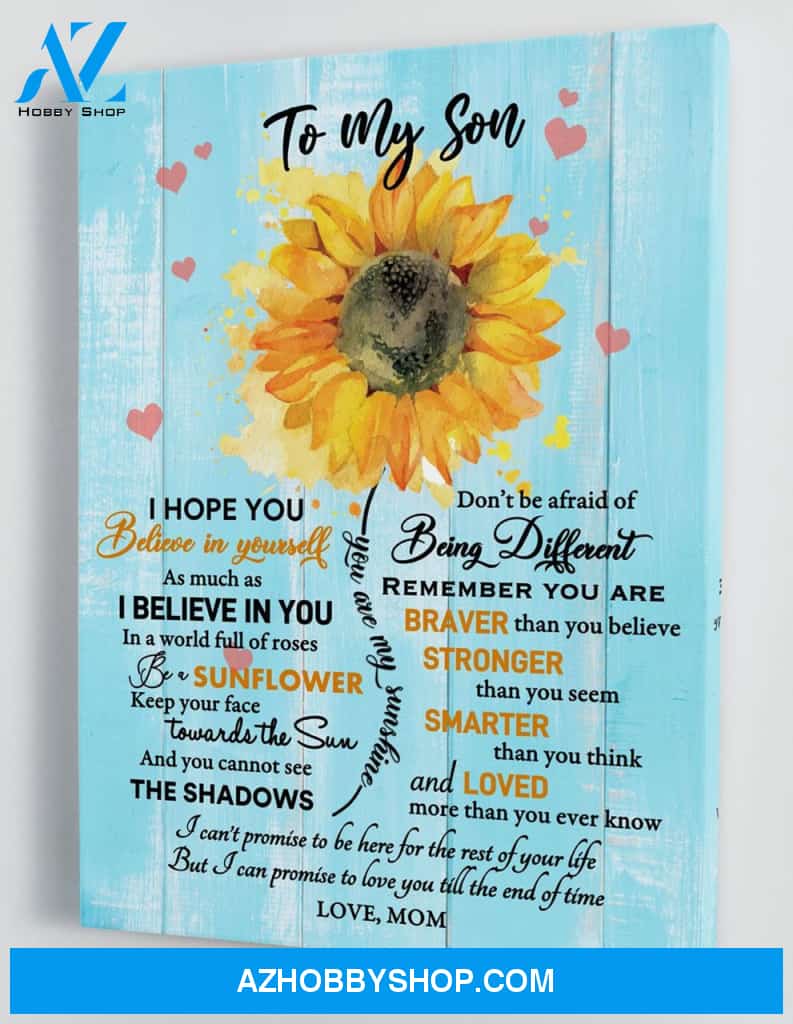 AZ
HOBBY SHOP
To My Son
I HOPE YOU
Believe in yourself
As much as
I BELIEVE IN YOU
In a world full of roses
Be a SUNFLOWER
Keep your face
towards the Sun
And you cannot see
THE SHADOWS
you are my sunshine
Don't be afraid of
Being Different
REMEMBER YOU ARE
BRAVER than you believe
STRONGER
than you seem
SMARTER
than you think
and LOVED
more than you ever know
I can't promise to be here for the rest of your life
But I can promise to love you till the end of time
LOVE, MOM
AZHOBBYSHOP.COM